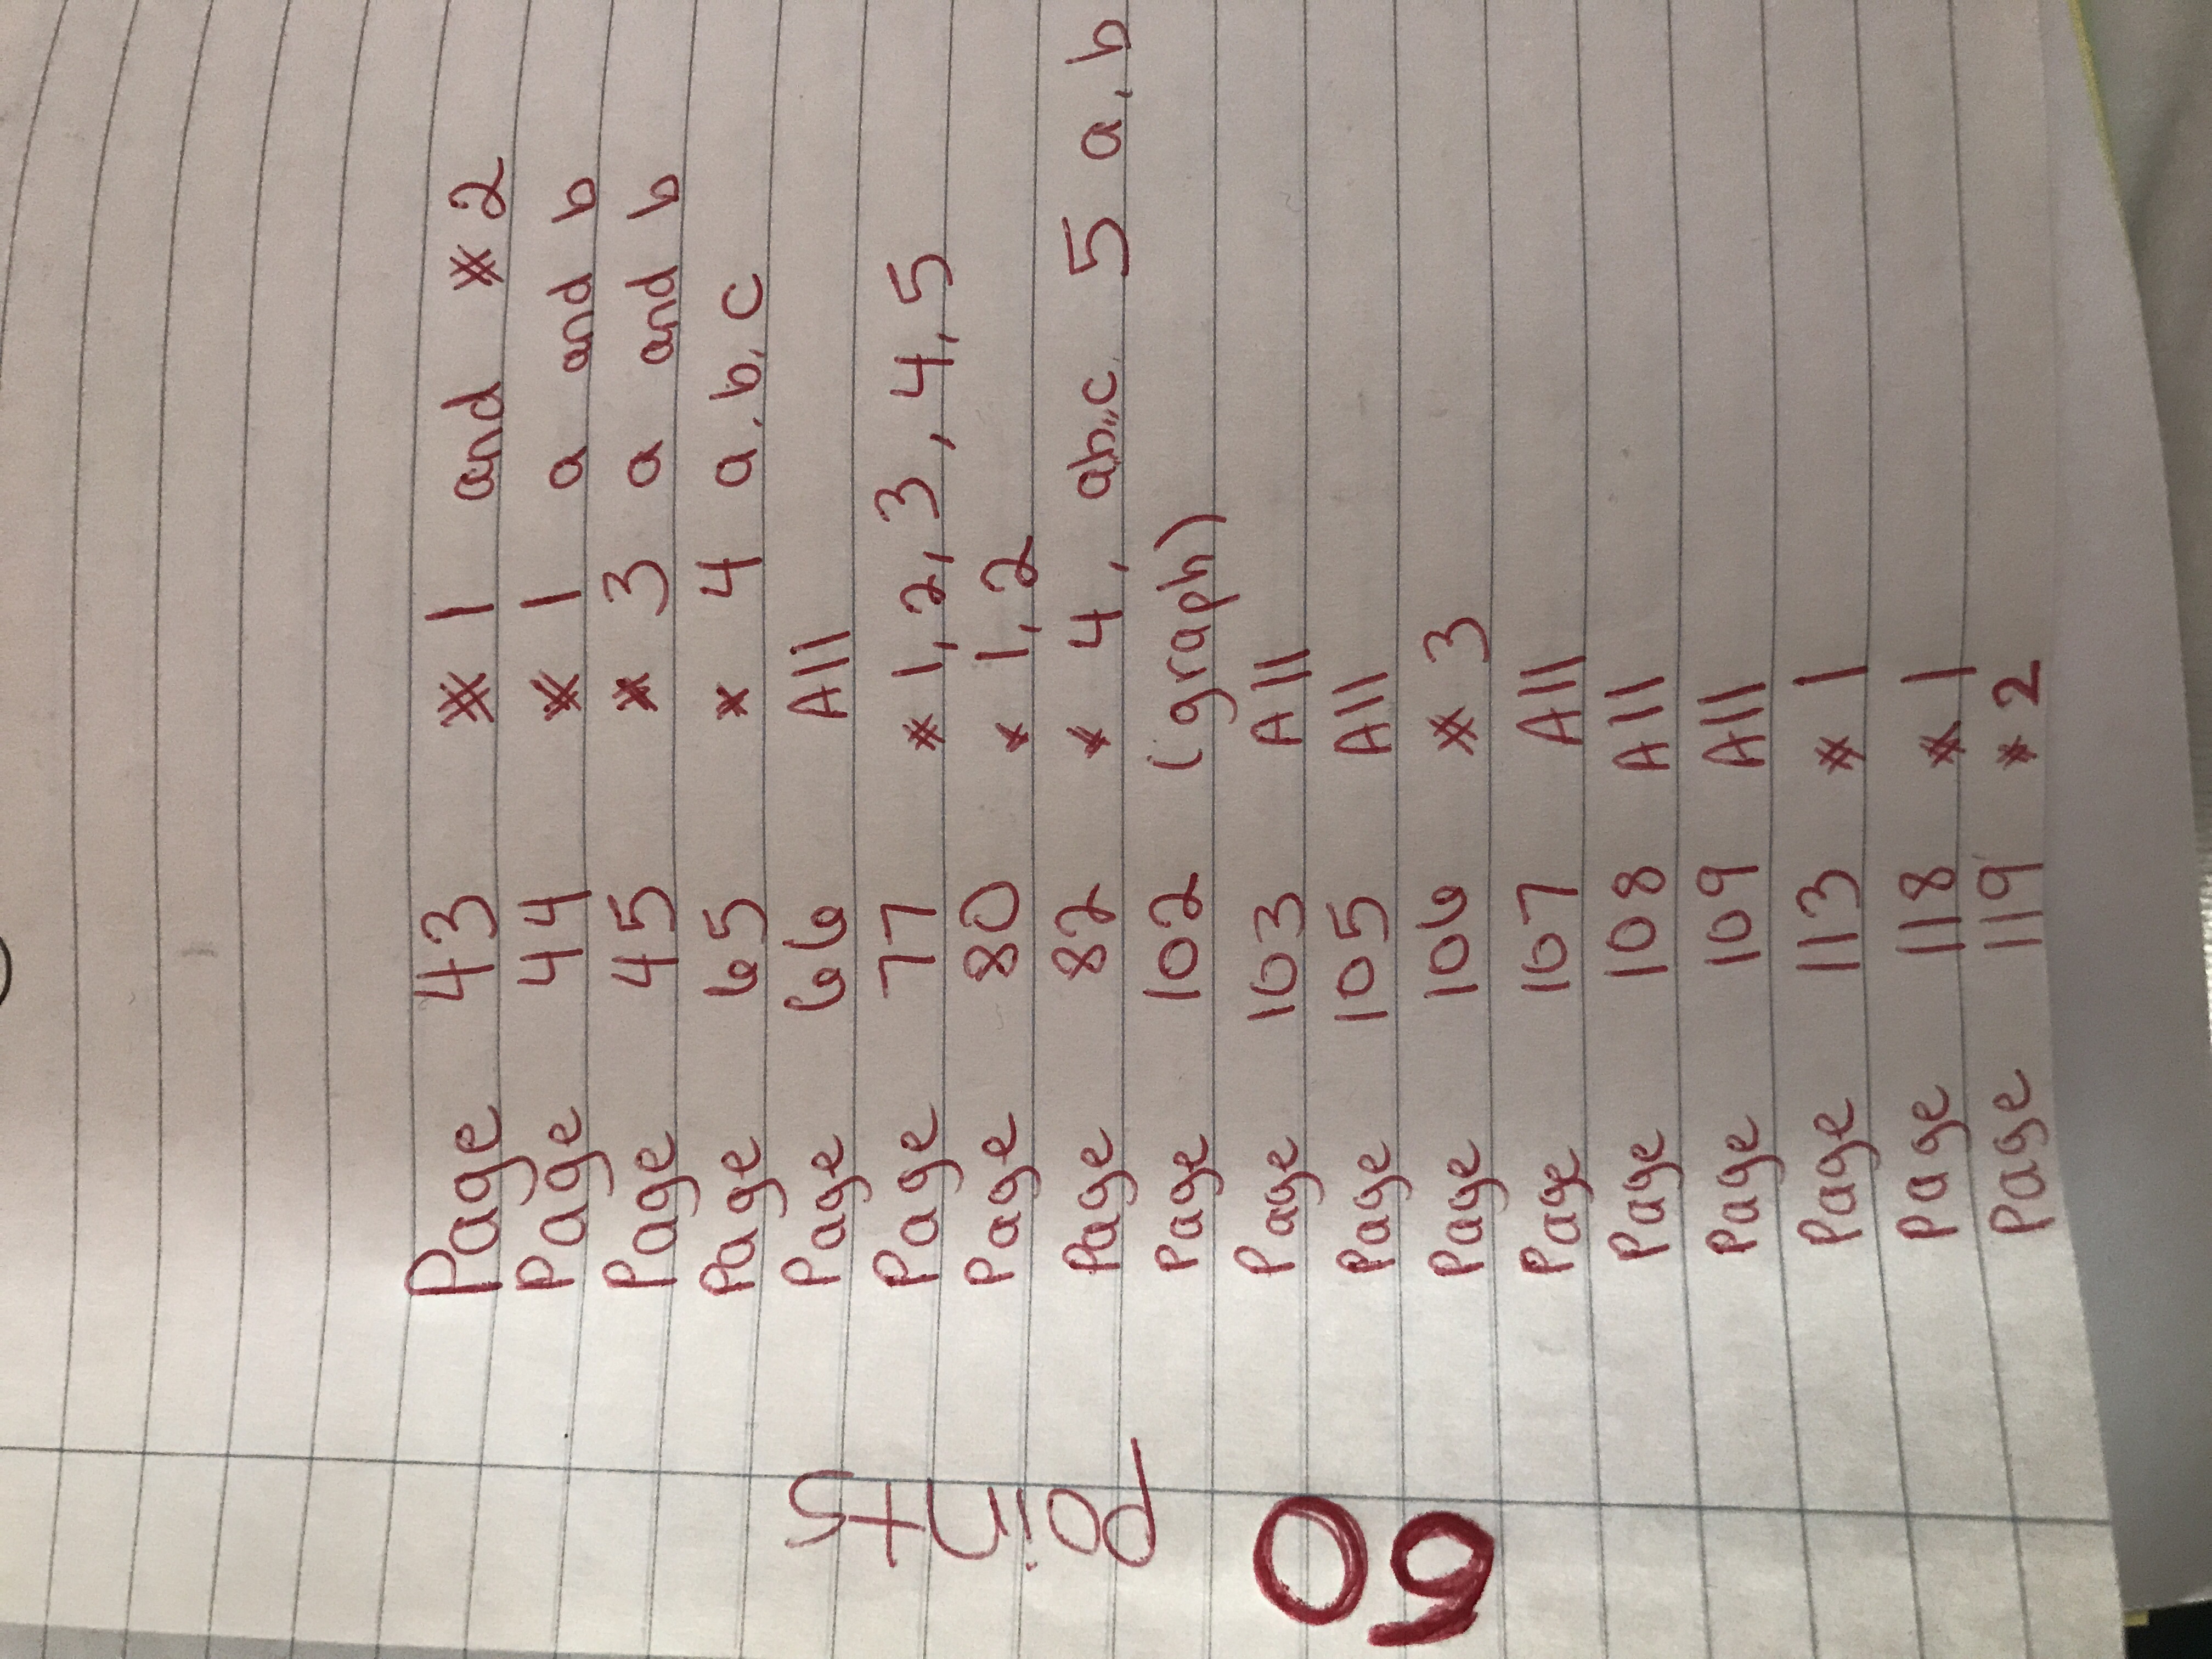 Page 43 # 1 and # 2
Page 44 # 1 a and b
Page 45 # 3 a and b
Page 65 # 4 a, b, c
Page 66 All
Page 77 # 1, 2, 3, 4, 5
Page 80 # 1, 2
Page 82 # 4, ab,,c 5 a, b
Page 102 (graph)
Page 103 All
Page 105 All
Page 106 # 3
Page 107 All
Page 108 All
Page 109 All
Page 113 # 1
Page 118 # 1
Page 119 # 2
60 points